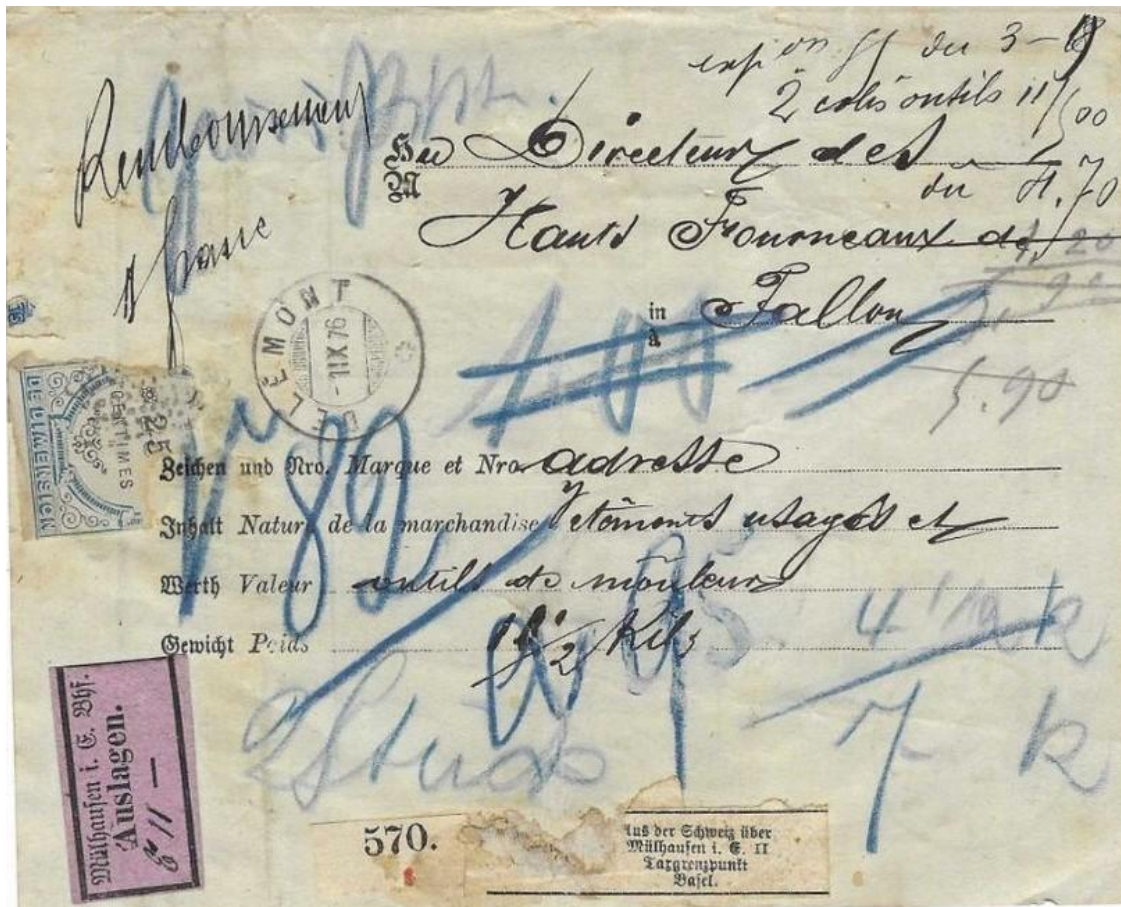 du 3-
2 colis outils 11/500
Remboursement
franc
Herr Directeur des
M
du 4.70
Hauts Fourneaux de
1.20
in Fallon
à
5.90
DELÉMONT
-1 IX 76
25
CENTIMES
DE DIMENSION
Zeichen und Nro. Marque et Nro adresse
Inhalt Nature de la marchandise vêtements usagés et
Werth Valeur outils de mouleur
Gewicht Poids 11 1/2 Kilos
2 Stück
4 1/2 k
7 k
Mülhausen i. E. Bhf.
Auslagen.
570.
Aus der Schweiz über
Mülhausen i. E. II
Taxgrenzpunkt
Basel.